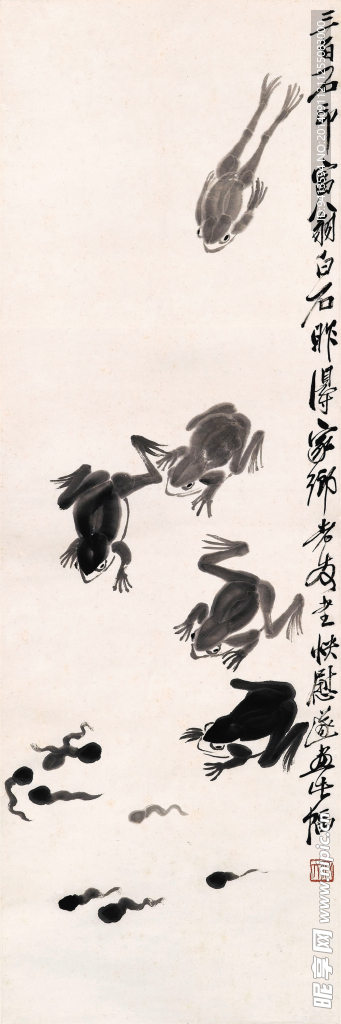 三百石印富翁白石昨得家乡老友书快慰遂画此幅
昵享网 www.nipic.cn